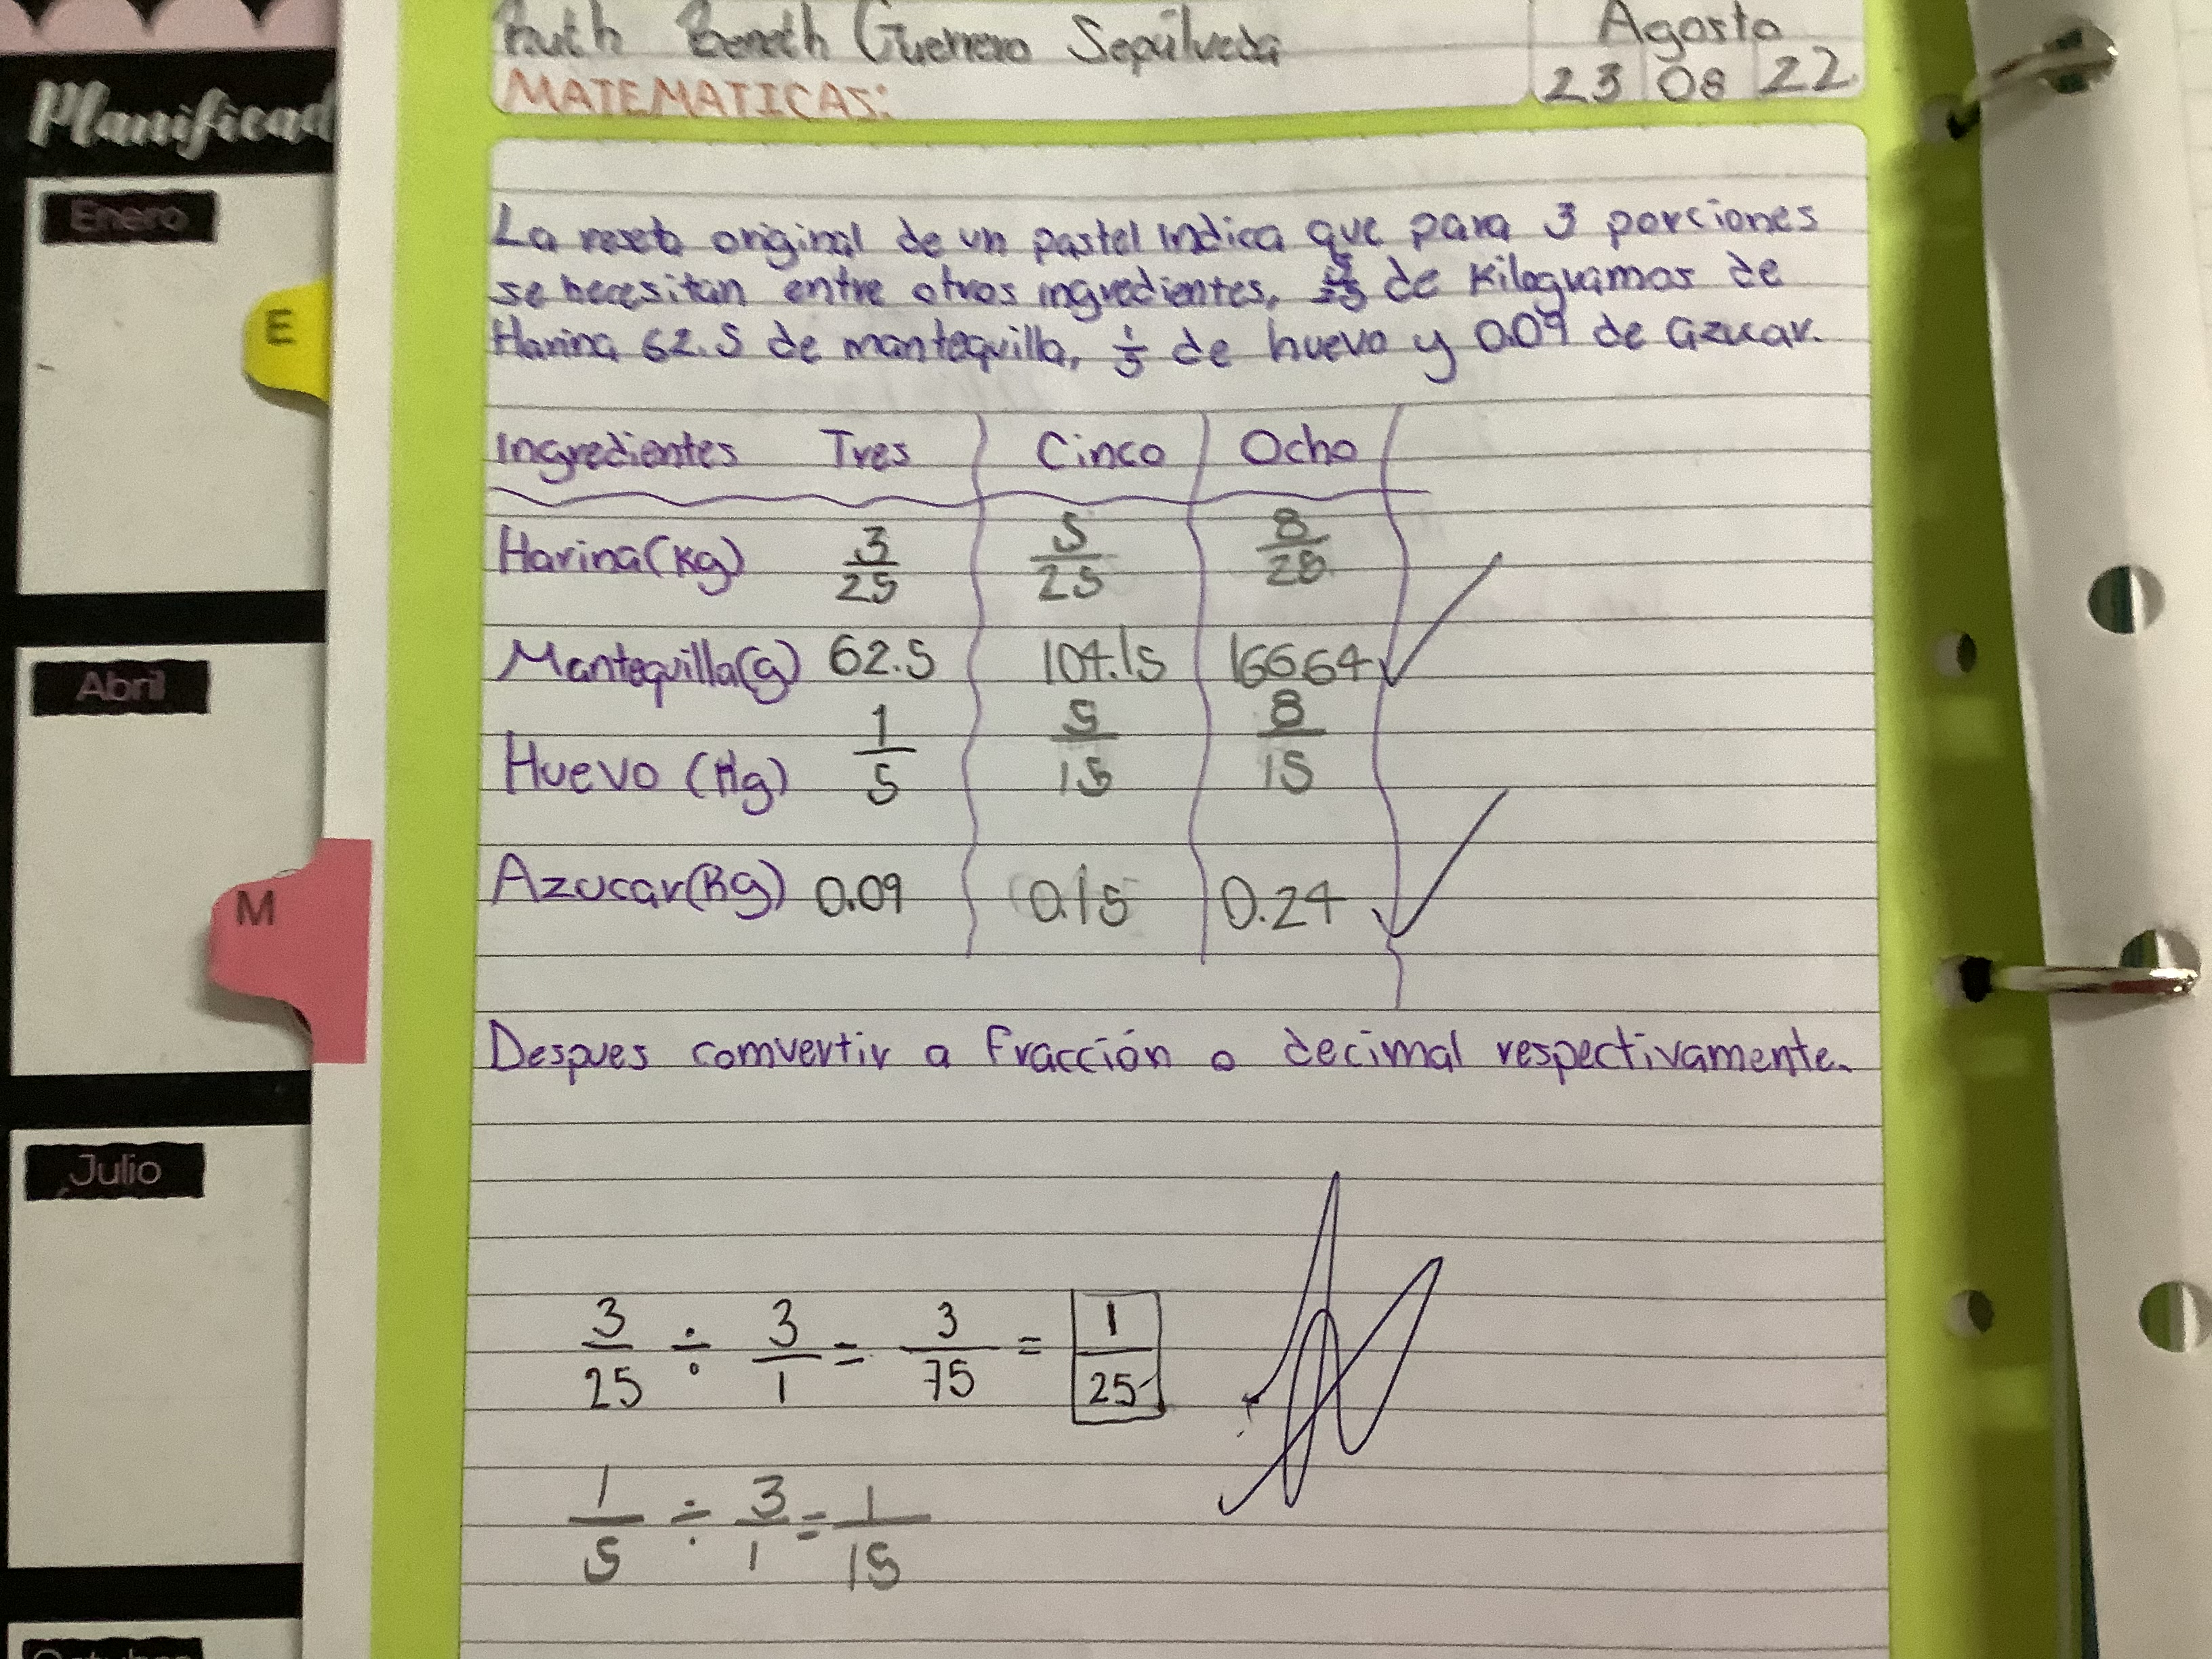 Ruth Beneth Guerrero Sepúlveda
Agosto
MATEMATICAS:
23 08 22
Planificad
Enero
E
Abril
M
Julio
La reseta original de un pastel indica que para 3 porciones
se necesitan entre otros ingredientes, de Kilogramos de
Harina 62.5 de mantequilla, 1/5 de huevo y 0.09 de azucar.
Ingredientes Tres Cinco Ocho
Harina(Kg) 3/25 5/25 8/25
Mantequilla(g) 62.5 104.15 166.64
Huevo (Kg) 1/5 5/15 8/15
Azucar(Kg) 0.09 0.15 0.24
Despues comvertir a fracción o decimal respectivamente.
3/25 ÷ 3/1 = 3/75 = 1/25
1/5 ÷ 3/1 = 1/15